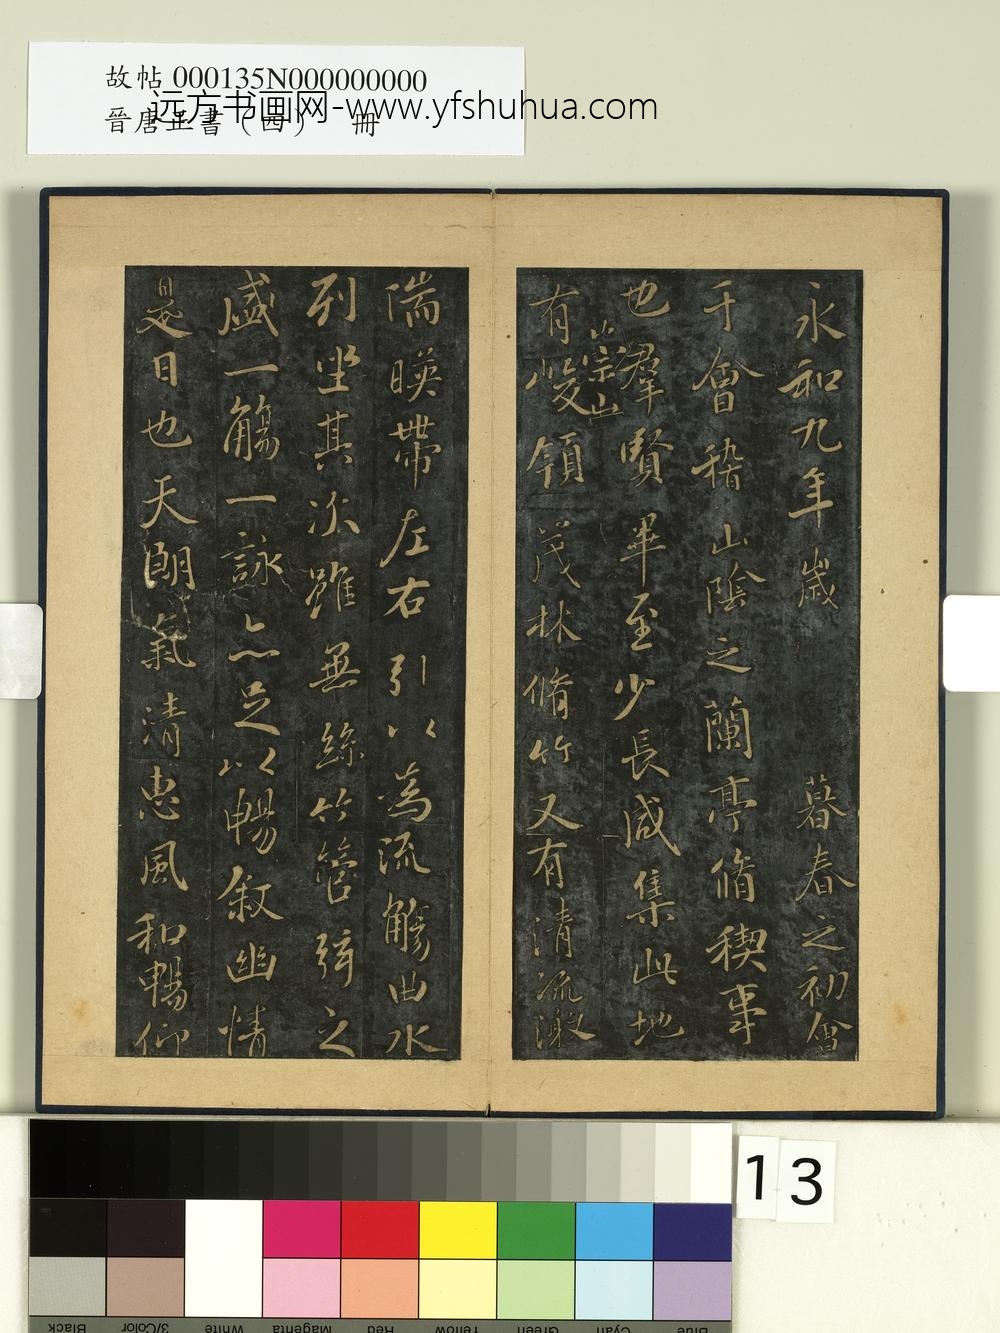 故帖 000135N000000000
晉唐正書（四） 冊
远方书画网-www.yfshuhua.com
永和九年歲暮春之初會
于會稽山陰之蘭亭脩稧事
也羣賢畢至少長咸集此地
有崇山
峻領茂林脩竹又有清流激
湍暎帶左右引以為流觴曲水
列坐其次雖無絲竹管弦之
盛一觴一詠亦足以暢敘幽情
是日也天朗氣清惠風和暢仰
13
Black
3/Color
White
Magenta
Red
Yellow
Green
Cyan
Blue